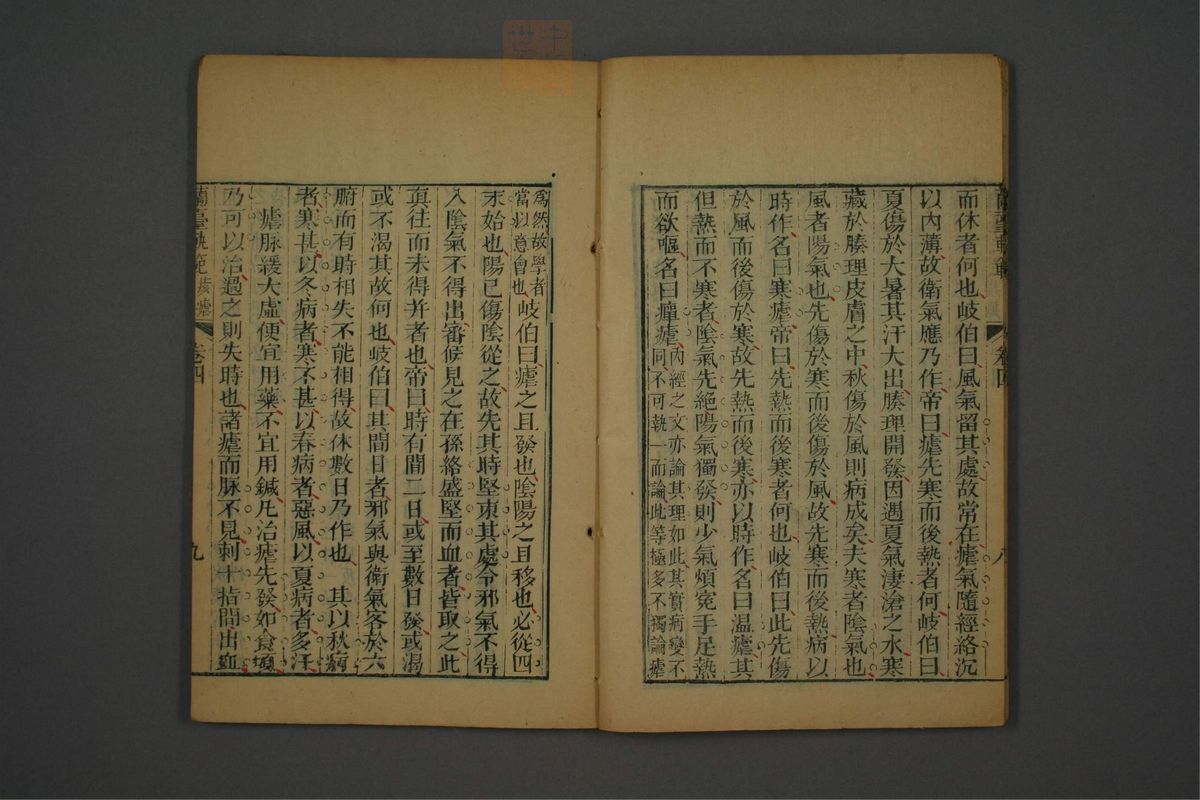 而休者何也岐伯曰風氣留其處故常在瘧氣隨經絡沉
以內薄故衛氣應乃作帝曰瘧先寒而後熱者何岐伯曰
夏傷於大暑其汗大出腠理開發因遇夏氣淒滄之水寒
藏於腠理皮膚之中秋傷於風則病成矣夫寒者陰氣也
風者陽氣也先傷於寒而後傷於風故先寒而後熱病以
時作名曰寒瘧帝曰先熱而後寒者何也岐伯曰此先傷
於風而後傷於寒故先熱而後寒亦以時作名曰温瘧其
但熱而不寒者陰氣先絕陽氣獨發則少氣煩寃手足熱
而欲嘔名曰癉瘧
內經之文亦論其理如此其實病變不
同不可執一而論此等極多不獨論瘧
卷四
八
為然故學者
當以意會也
岐伯曰瘧之且發也陰陽之且移也必從四
末始也陽已傷陰從之故先其時堅束其處令邪氣不得
入陰氣不得出審候見之在孫絡盛堅而血者皆取之此
真往而未得并者也帝曰時有間二日或至數日發或渴
或不渴其故何也岐伯曰其間日者邪氣與衛氣客於六
腑而有時相失不能相得故休數日乃作也 其以秋病
者寒甚以冬病者寒不甚以春病者惡風以夏病者多汗
瘧脉緩大虛便宜用藥不宜用鍼凡治瘧先發如食頃
乃可以治過之則失時也諸瘧而脉不見刺十指間出血
蘭臺軌範
卷四
九